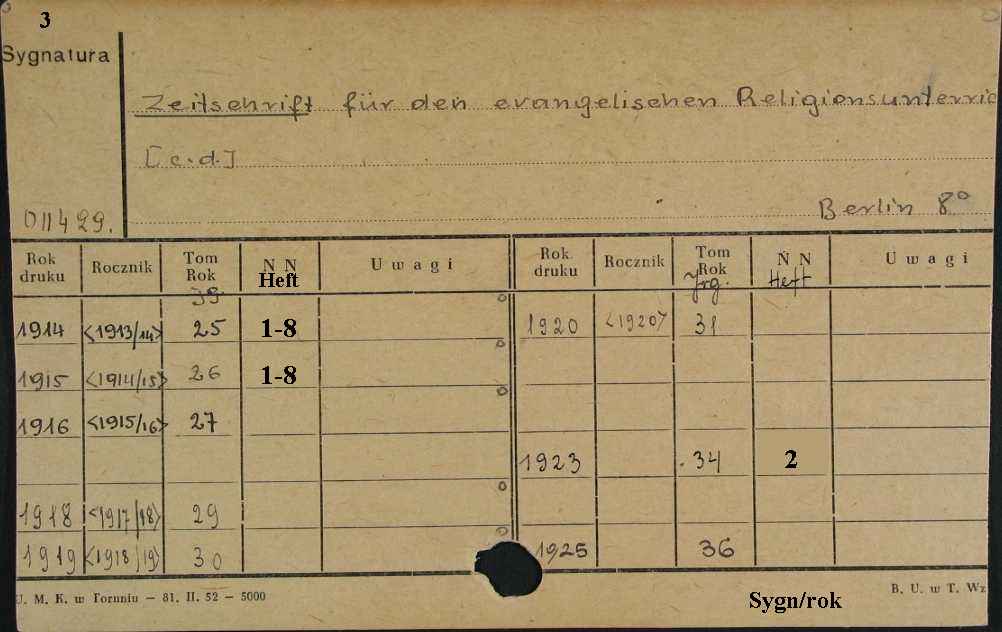 3
Sygnatura
Zeitschrift für den evangelischen Religionsunterric
[c.d.]
Berlin 8°
011499.
Rok druku Rocznik Tom Rok N N Heft Uwagi Rok druku Rocznik Tom Rok Jrg. N N Heft Uwagi
1914 <1913/14> 25 1-8 1920 <1920> 31
1915 <1914/15> 26 1-8
1916 <1915/16> 27
1923 34 2
1918 <1917/18> 29
1919 <1918/19> 30 1925 36
U. M. K. w Toruniu – 81. II. 52 – 5000
B. U. w T. Wz
Sygn/rok